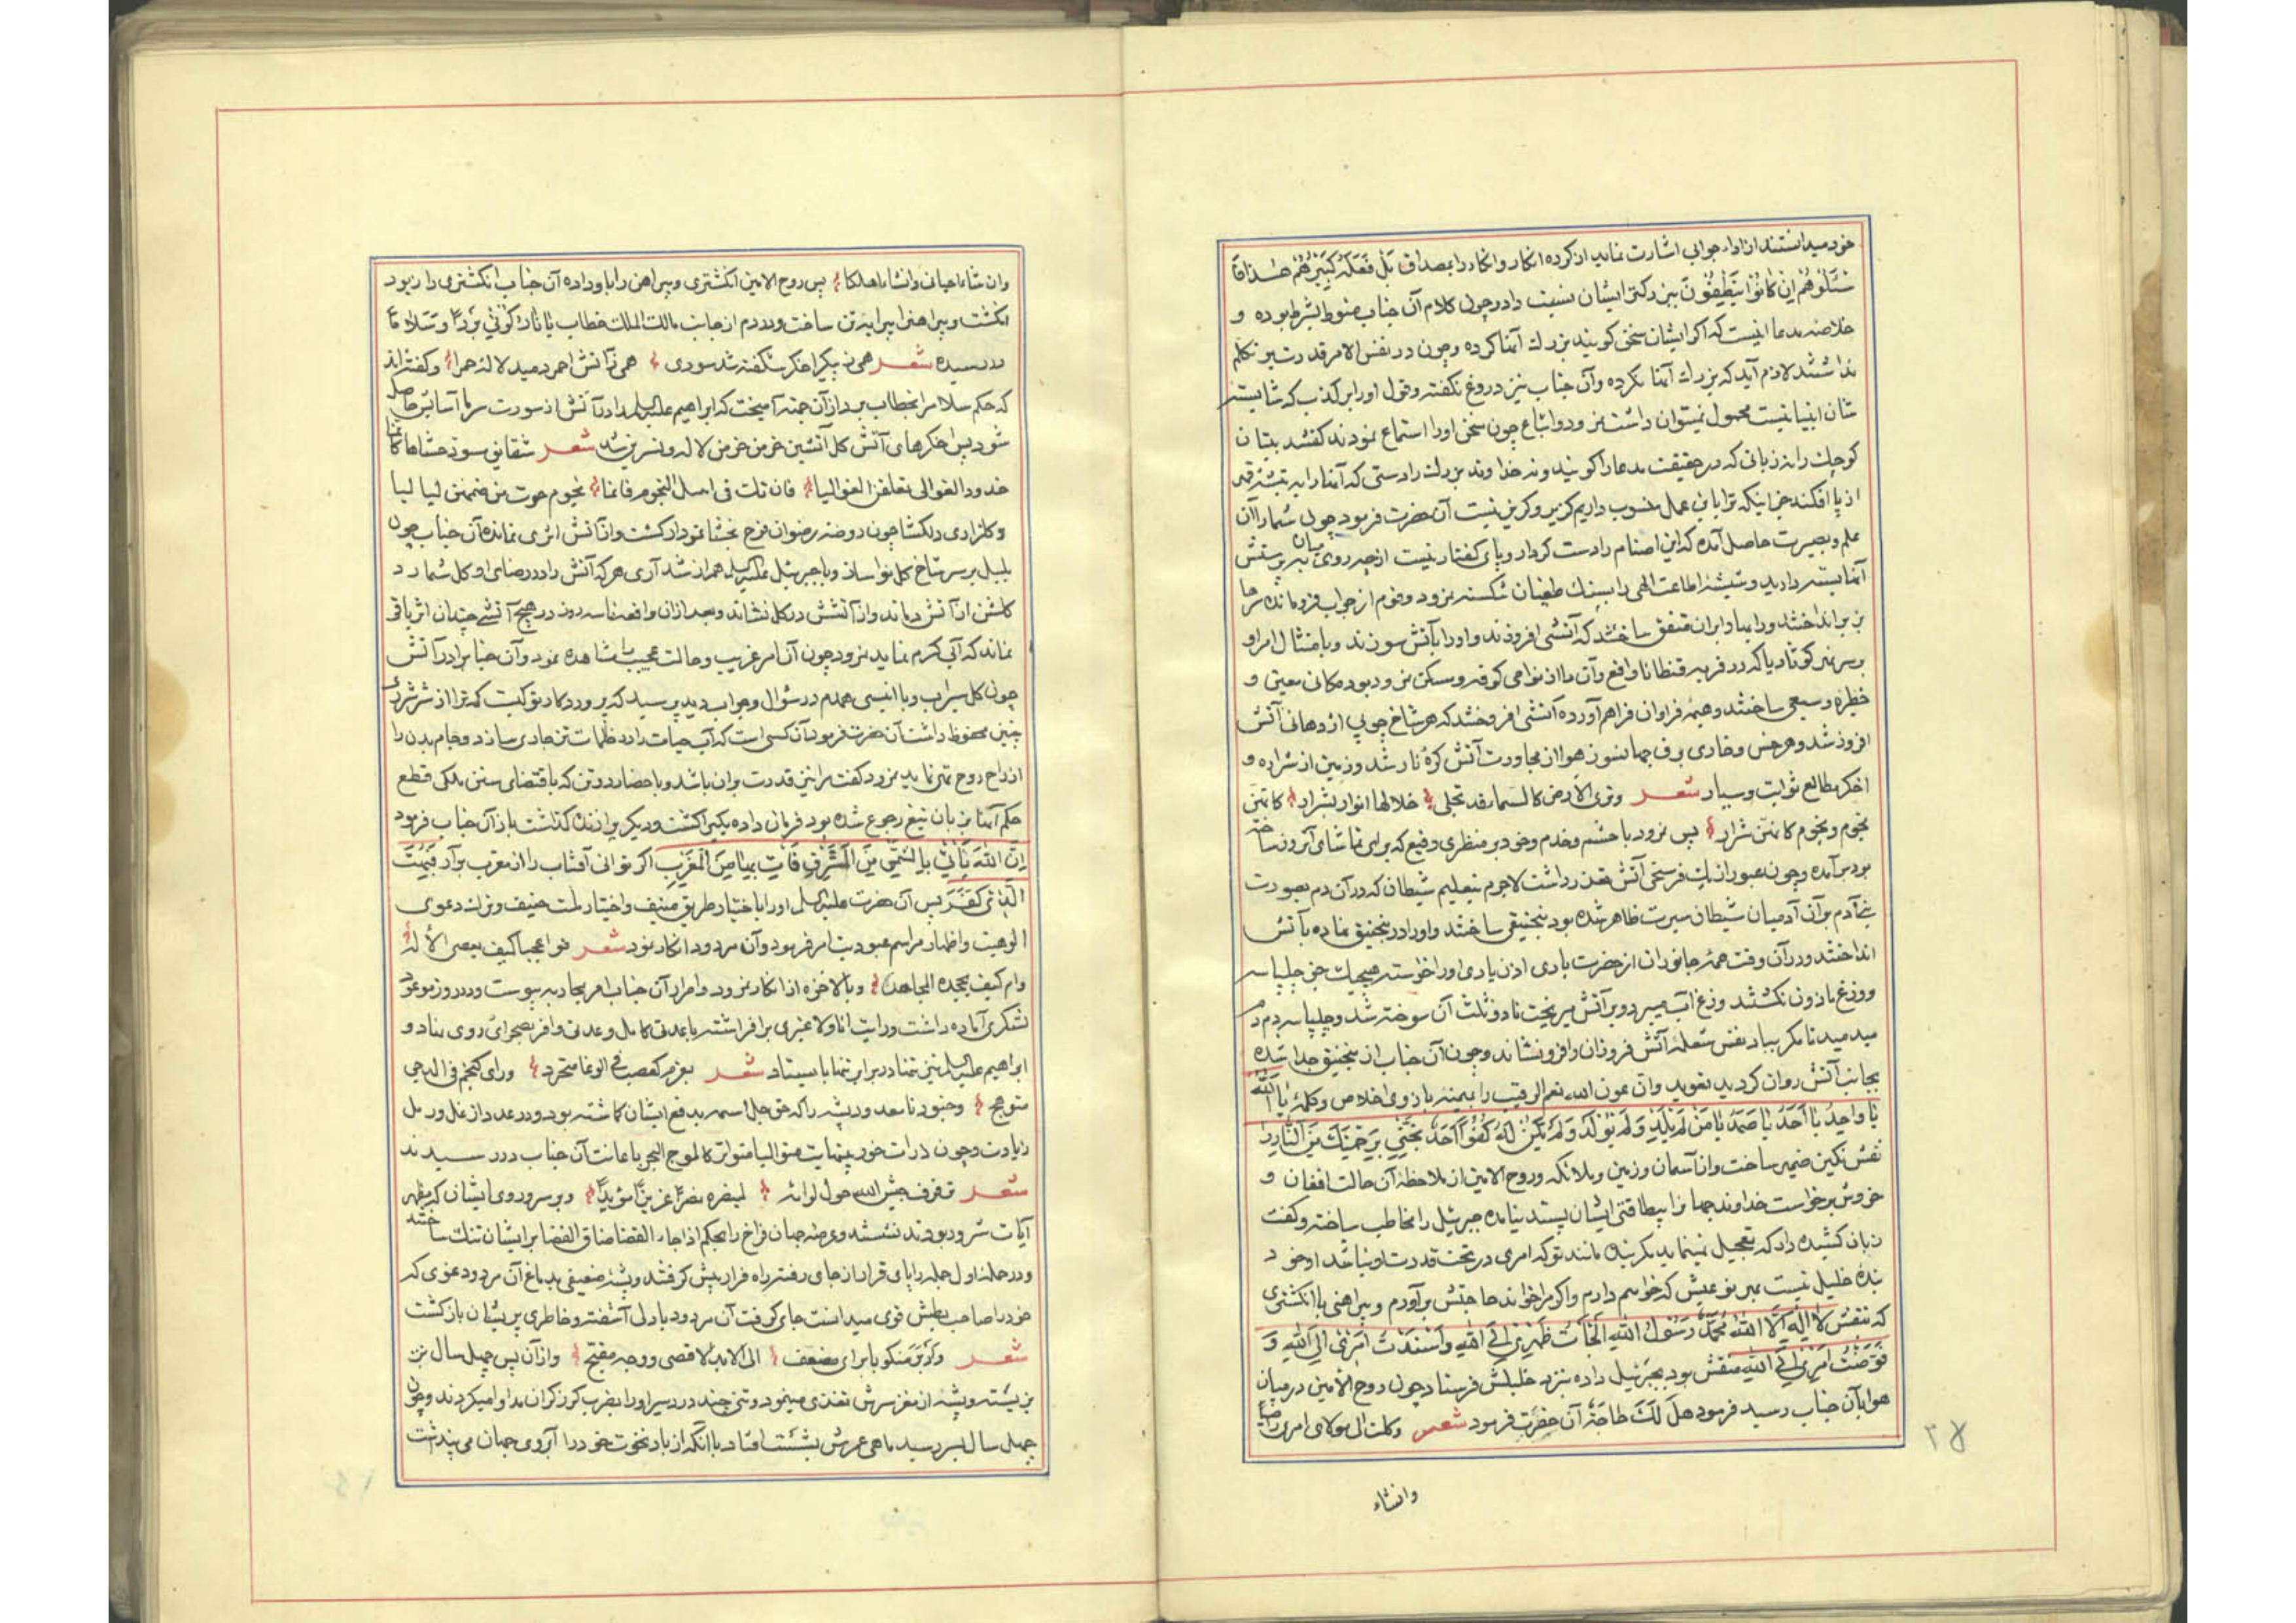 خود میدانستند ازاداء جوابی اشارت نماید از کرده انکار وانکار را بمصداق بَل فَعَلَهُ کَبِیرُهُم هٰذا فَا
سْئَلُوهُم اِن کانُوا یَنْطِقُونَ ببزرکتر ایشان نسبت داد وچون کلام آن جناب منوط بشرط بوده و
خلاصه مدعا اینست که اکر ایشان سخن کویند بزرك آنها کرده وچون در نفس الامر قدرت بر تکلم
نداشتند لازم آید که بزرك آنها نکرده وآن جناب نیز دروغ نکفته وقول او را بر کذب که شایسته
شان انبیا نیست محمول نمیتوان داشت نمرود واتباع چون سخن او را استماع نمودند کفتند بتان
کوچك را نه زبانی که در حقیقت مدعا را کویند ونه خداوند بزرك را دستی که آنها را به تیشه قهر
از پا افکند جز اینکه ترا باین عمل منسوب داریم کزیر وکریز نیست آن حضرت فرمود چون شما را آن
علم وبصیرت حاصل آمده که این اصنام را دست کردار وپای کفتار نیست از چه روی میان به پرستش
آنها بسته دارید وشیشهٔ اطاعت الهی را بسنك طغیان شکسته نمرود وقوم از جواب فرو مانده سرها
بزیر انداختند ورای ایشان متفق ساختند که آتشی افروزند واو را بآتش سوزند وبامتثال امر او
بر سر نهر کوثاریا که در قریه قنطانا واقع وآن ما از نواحی کوفه ومسکن نمرود بود مکانی معین و
خطیرهٔ وسیعی ساختند وهیمهٔ فراوان فراهم آورده آتشی افروختند که هر شاخ چوبی اژدهائی آتش
افروز شد وهر خس وخاری برق جهانسوز هوا از مجاورت آتش کرهٔ نار شد وزمین از شراره و
اخکر مطالع ثوابت وسیار شعر وتری الارض کالسماء قد تجلی خلالها انوار بشرار کانهن
نجوم ونجوم کانهن شرار پس نمرود با حشم وخدم وخود بر منظری رفیع که برای تماشای آن روز ساخته
بود بر آمده وچون عبور از یك فرسخی آتش تعذر داشت لاجرم بتعلیم شیطان که در آن دم بصورت
بنی آدم بر آن آدمیان شیطان سیرت ظاهر شده بود منجنیقی ساختند واو را در منجنیق نهاده بآتش
انداختند ودر آن وقت همه جانوران از حضرت باری اذن یاری او را خواسته هیچیك جز چلپاسه
ووزغ ماذون نکشتند وزغ آب میبرد وبر آتش میریخت تا دو ثلث آن سوخته شد وچلپاسه دم در
میدمید تا مکر بباد نفس شعلهٔ آتش فروزان را فرو نشاند وچون آن جناب از منجنیق جدا شده
بجانب آتش روان کردید تعوید وان عون الله نعم الرقیب را بمیمنهٔ بازوی اخلاص وکلمهٔ یا الله
یا واحِدُ یا اَحَدُ یا صَمَدُ یا مَنْ لَم یَلِدْ وَلَم یُولَدْ وَلَم یَکُنْ لَهُ کُفُوًا اَحَدٌ نَجِّنی بِرَحْمَتِكَ مِنَ النّارِ را
نقش نکین ضمیر ساخت واز آسمان وزمین وملائکه وروح الامین از ملاحظهٔ آن حالت افغان و
خروش برخواست خداوند جهان را بیطاقتی ایشان پسند نیامده جبرئیل را مخاطب ساخته وکفت
زبان کشیده دار که تعجیل نمینماید بکر بنده مانند تو که امری در تحت قدرت او نباشد او خود
بندهٔ خلیل نیست بمن بو عیش که خواهم دارم واکر مرا خواند حاجتش بر آورم وپیراهنی با انکشتری
که بنقش لا اِلٰهَ اِلَّا اللّٰهُ مُحَمَّدٌ رَسُولُ اللّٰهِ اَلْجَأتُ ظَهْری اِلَی اللّٰهِ وَاَسْنَدْتُ اَمْری اِلَی اللّٰهِ وَ
فَوَّضْتُ اَمْری اِلَی اللّٰهِ منقش بود بجبرئیل داده بنزد خلیلش فرستاد چون روح الامین در میان
هوا بآن جناب رسید فرمود هَل لَكَ حاجَةٌ آن حضرت فرمود شعر وکلت الی مولای امری
وانشاء
وان شاء احیانی وانشاء اهلکا پس روح الامین انکشتری وپیراهن را باو داده آن جناب انکشتری را زیور
انکشت وپیراهن را پیرایه تن ساخت ودر دم از جانب مالك الملك خطاب یا نارُ کُونی بَرْدًا وَسَلامًا
در رسیده شعر همی پیکر اخکر شکفته شد سوری همی ز آتش احمر دمید لاله حمرا وکفته‌اند
که حکم سلاما بخطاب بردا از آن جهت آمیخت که ابراهیم علیه السلام را در آتش از سورت سرما آسایش حاصل
شود پس اخکرهای آتش کل آتشین خرمن خرمن لاله ونسرین شد شعر شقایق سوذ حشاها کانها
خدود الغوانی تعلقن الغوالیا فان تلت فی اصل النجوم فانما نجوم هوت من ضمنهن لیالیا
وکلزاری دلکشا چون روضه رضوان فرح بخشا نمودار کشت واز آتش اثری نمانده آن جناب چون
بلبل بر سر شاخ کل نواساز وبا جبرئیل علیه السلام همراز شد آری هر که آتش را در رضای او کل شمارد
کلشن از آتش دماند واز آتشش در کل نشاند وبعد از آن واقعه تا سه روز در هیچ آتشی چندان اثر باقی
نماند که آبی کرم نماید نمرود چون آن امر غریب وحالت عجیب مشاهده نمود وآن جناب را در آتش
چون کل سیراب وبا انیسی همدم در سؤال وجواب دید پرسید که پروردکار تو کیست که ترا از شر شرر
چنین محفوظ داشت آن حضرت فرمود آن کسی است که آب حیات را در ظلمات تن جاری سازد وجام بدن را
از راح روح تهی نماید نمرود کفت مرا نیز قدرت بر آن باشد وباحضار دو تن که باقتضای سنن ملکی قطع
حکم آنها بزبان تیغ رجوع شده بود فرمان داده یکی را کشت ودیکری را زنده کذاشت باز آن جناب فرمود
اِنَّ اللّٰهَ یَأتی بِالشَّمْسِ مِنَ الْمَشْرِقِ فَأتِ بِها مِنَ الْمَغْرِبِ اکر توانی آفتاب را از مغرب بر آر فَبُهِتَ
الَّذی کَفَرَ پس آن حضرت علیه السلام او را باختیار طریق منیف واختیار ملت حنیف وترك دعوی
الوهیت واظهار مراسم عبودیت امر فرمود وآن مردود انکار نمود شعر فوا عجبا کیف یعصی الاله
وام کیف یجحده الجاحد وبالاخره از انکار نمرود واصرار آن جناب امر بمحاربه پیوست ودر روز موعود
لشکری آماده داشت ورایت انا ولا غیری بر افراشته با عدتی کامل وعدتی وافر بصحرائی روی نهاد و
ابراهیم علیه السلام نیز تنها در برابر تنها بایستاد شعر بعزم کعصب فی الوغا متجرد ورای کنجم فی الدجی
متوهج وجنود نامعدود پشه را که حق جل اسمه بدفع ایشان کماشته بود ودر عدد از نمل ورمل
زیادت وچون ذرات خود بینهایت متوالیا متواترا کالموج البحر باعانت آن جناب در رسیدند
شعر فرفرف جیش الله حول لوائه لینصره نصرًا عزیزًا مؤیدًا وبر سر وروی ایشان که مظهر
آیات شرور بودند نشستند وعرصه جهان فراخ را بحکم اذا جاء القضا ضاق الفضا بر ایشان تنك ساختند
ودر حمله اول جمله را پای قرار از جای رفته راه فرار پیش کرفتند وپشهٔ ضعیفی بدماغ آن مردود غوی که
خود را صاحب بطش قوی میدانست جای کرفت آن مردود با دلی آشفته وخاطری پریشان باز کشت
شعر منکوبا برای مضعف الی الابد الاقصی ووجه مقبح واز آن پس چهل سال نیز
بزیست وپشه از مغز سرش تغذی مینمود وتنی چند در سر او را بضرب کرز کران مداوا میکردند وچون
چهل سال بسر رسید ماحی عرش بشئت افتاد با آنکه از باد نخوت خود را آبروی جهان می پنداشت